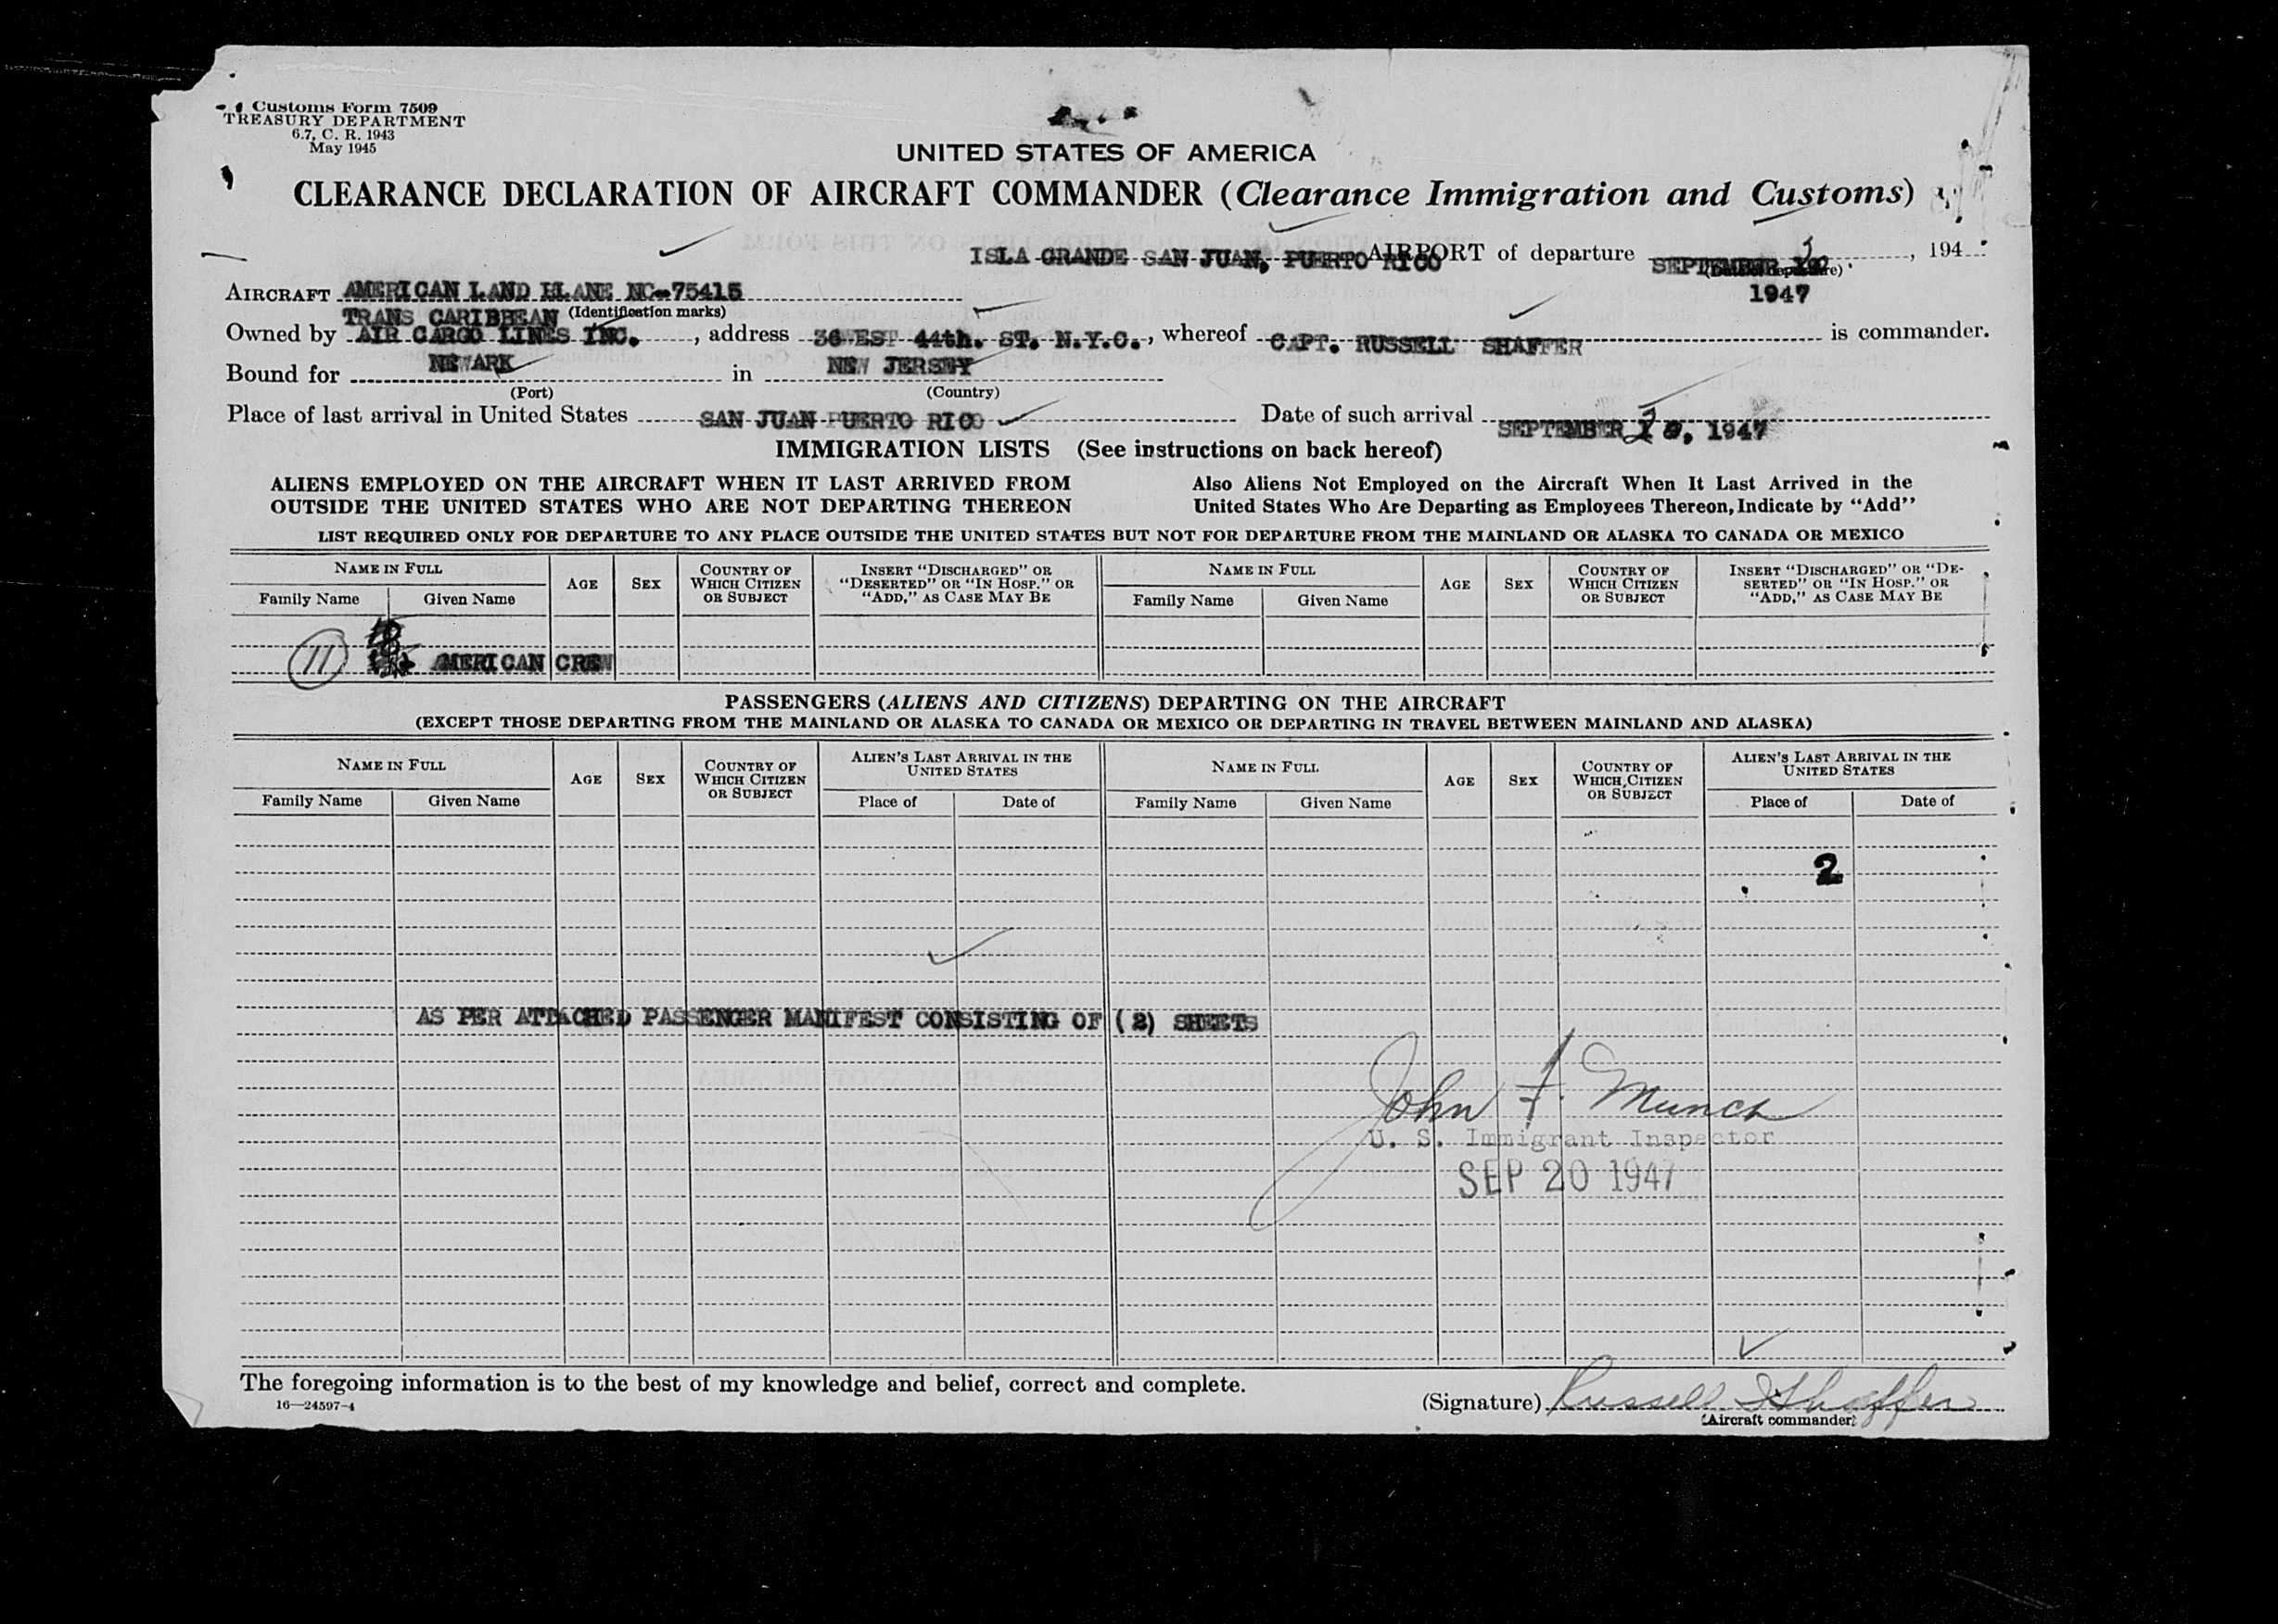 Customs Form 7509
TREASURY DEPARTMENT
6.7, C. R. 1943
May 1945
UNITED STATES OF AMERICA
CLEARANCE DECLARATION OF AIRCRAFT COMMANDER (Clearance Immigration and Customs)
ISLA GRANDE SAN JUAN, PUERTO RICO AIRPORT of departure SEPTEMBER , 194
1947
AIRCRAFT AMERICAN LAND PLANE NC-75415
(Identification marks)
TRANS CARIBBEAN
Owned by AIR CARGO LINES INC. , address 36 EST 44th. ST. N.Y.C. , whereof CAPT. RUSSELL SHAFFER is commander.
Bound for NEWARK in NEW JERSEY
(Port) (Country)
Place of last arrival in United States SAN JUAN PUERTO RICO Date of such arrival SEPTEMBER , 1947
IMMIGRATION LISTS (See instructions on back hereof)
ALIENS EMPLOYED ON THE AIRCRAFT WHEN IT LAST ARRIVED FROM
OUTSIDE THE UNITED STATES WHO ARE NOT DEPARTING THEREON
Also Aliens Not Employed on the Aircraft When It Last Arrived in the
United States Who Are Departing as Employees Thereon, Indicate by "Add"
LIST REQUIRED ONLY FOR DEPARTURE TO ANY PLACE OUTSIDE THE UNITED STATES BUT NOT FOR DEPARTURE FROM THE MAINLAND OR ALASKA TO CANADA OR MEXICO
NAME IN FULL
Family Name Given Name
AGE
SEX
COUNTRY OF
WHICH CITIZEN
OR SUBJECT
INSERT "DISCHARGED" OR
"DESERTED" OR "IN HOSP." OR
"ADD," AS CASE MAY BE
NAME IN FULL
Family Name Given Name
AGE
SEX
COUNTRY OF
WHICH CITIZEN
OR SUBJECT
INSERT "DISCHARGED" OR "DE-
SERTED" OR "IN HOSP." OR
"ADD," AS CASE MAY BE
11 AMERICAN CREW
PASSENGERS (ALIENS AND CITIZENS) DEPARTING ON THE AIRCRAFT
(EXCEPT THOSE DEPARTING FROM THE MAINLAND OR ALASKA TO CANADA OR MEXICO OR DEPARTING IN TRAVEL BETWEEN MAINLAND AND ALASKA)
NAME IN FULL
Family Name Given Name
AGE
SEX
COUNTRY OF
WHICH CITIZEN
OR SUBJECT
ALIEN'S LAST ARRIVAL IN THE
UNITED STATES
Place of Date of
NAME IN FULL
Family Name Given Name
AGE
SEX
COUNTRY OF
WHICH CITIZEN
OR SUBJECT
ALIEN'S LAST ARRIVAL IN THE
UNITED STATES
Place of Date of
2
AS PER ATTACHED PASSENGER MANIFEST CONSISTING OF (2) SHEETS
John F. Munch
U. S. Immigrant Inspector
SEP 20 1947
The foregoing information is to the best of my knowledge and belief, correct and complete.
16—24597-4
(Signature) Russell Shaffer
(Aircraft commander)